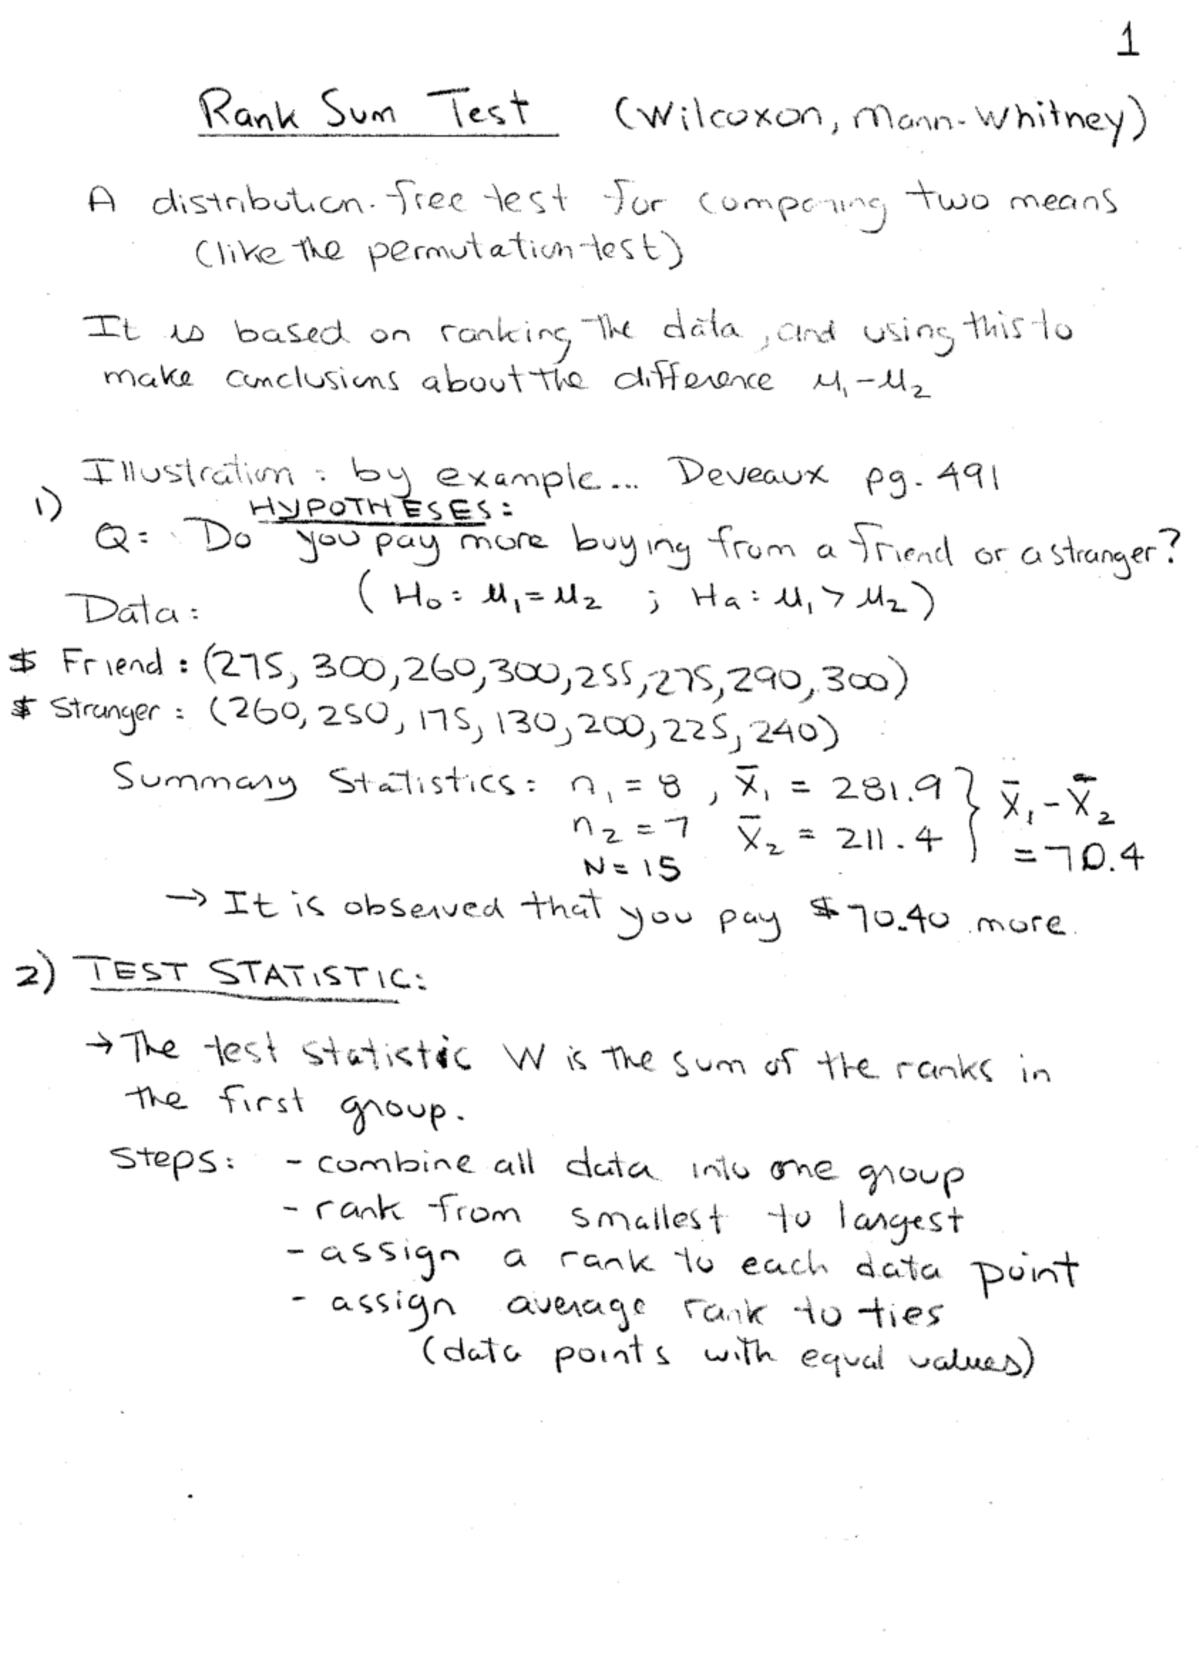 1
Rank Sum Test (Wilcoxon, Mann-Whitney)
A distribution-free test for comparing two means
(like the permutation test)
It is based on ranking the data, and using this to
make conclusions about the difference μ₁-μ₂
Illustration: by example... Deveaux pg. 491
1) HYPOTHESES:
Q: Do you pay more buying from a friend or a stranger?
(H₀: μ₁=μ₂ ; Ha: μ₁>μ₂)
Data:
$ Friend: (275, 300, 260, 300, 255, 275, 290, 300)
$ Stranger: (260, 250, 175, 130, 200, 225, 240)
Summary Statistics: n₁=8, x̄₁ = 281.9 } x̄₁-x̄₂
n₂=7 x̄₂ = 211.4 =70.4
N=15
→ It is observed that you pay $70.40 more.
2) TEST STATISTIC:
→ The test statistic W is the sum of the ranks in
the first group.
Steps: - combine all data into one group
- rank from smallest to largest
- assign a rank to each data point
- assign average rank to ties
(data points with equal values)